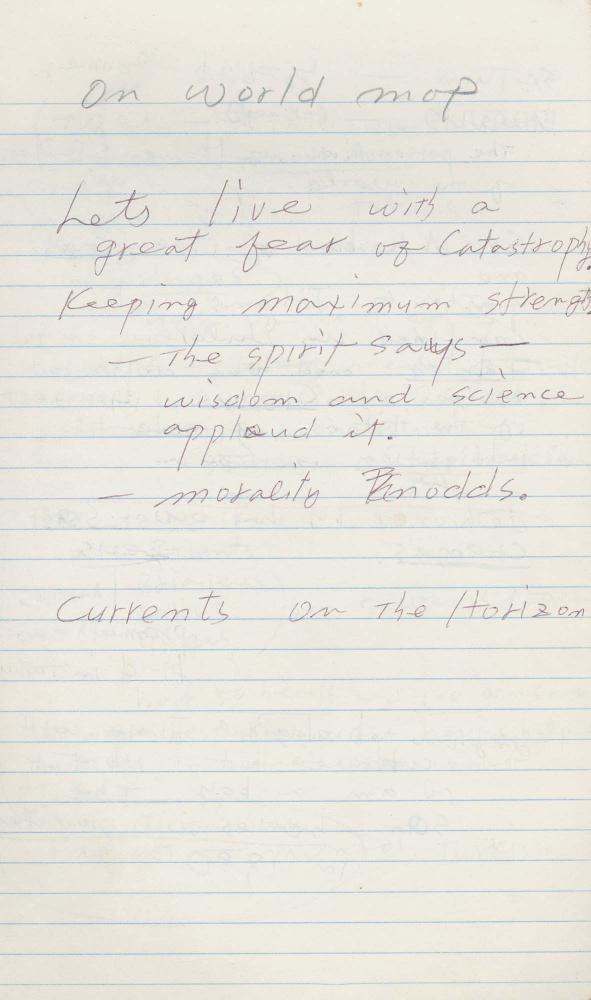 On world map
Lets live with a
great fear of Catastrophy.
Keeping maximum strengt
— The spirit says —
wisdom and science
applaud it.
— morality nodds.
Currents on the Horizon